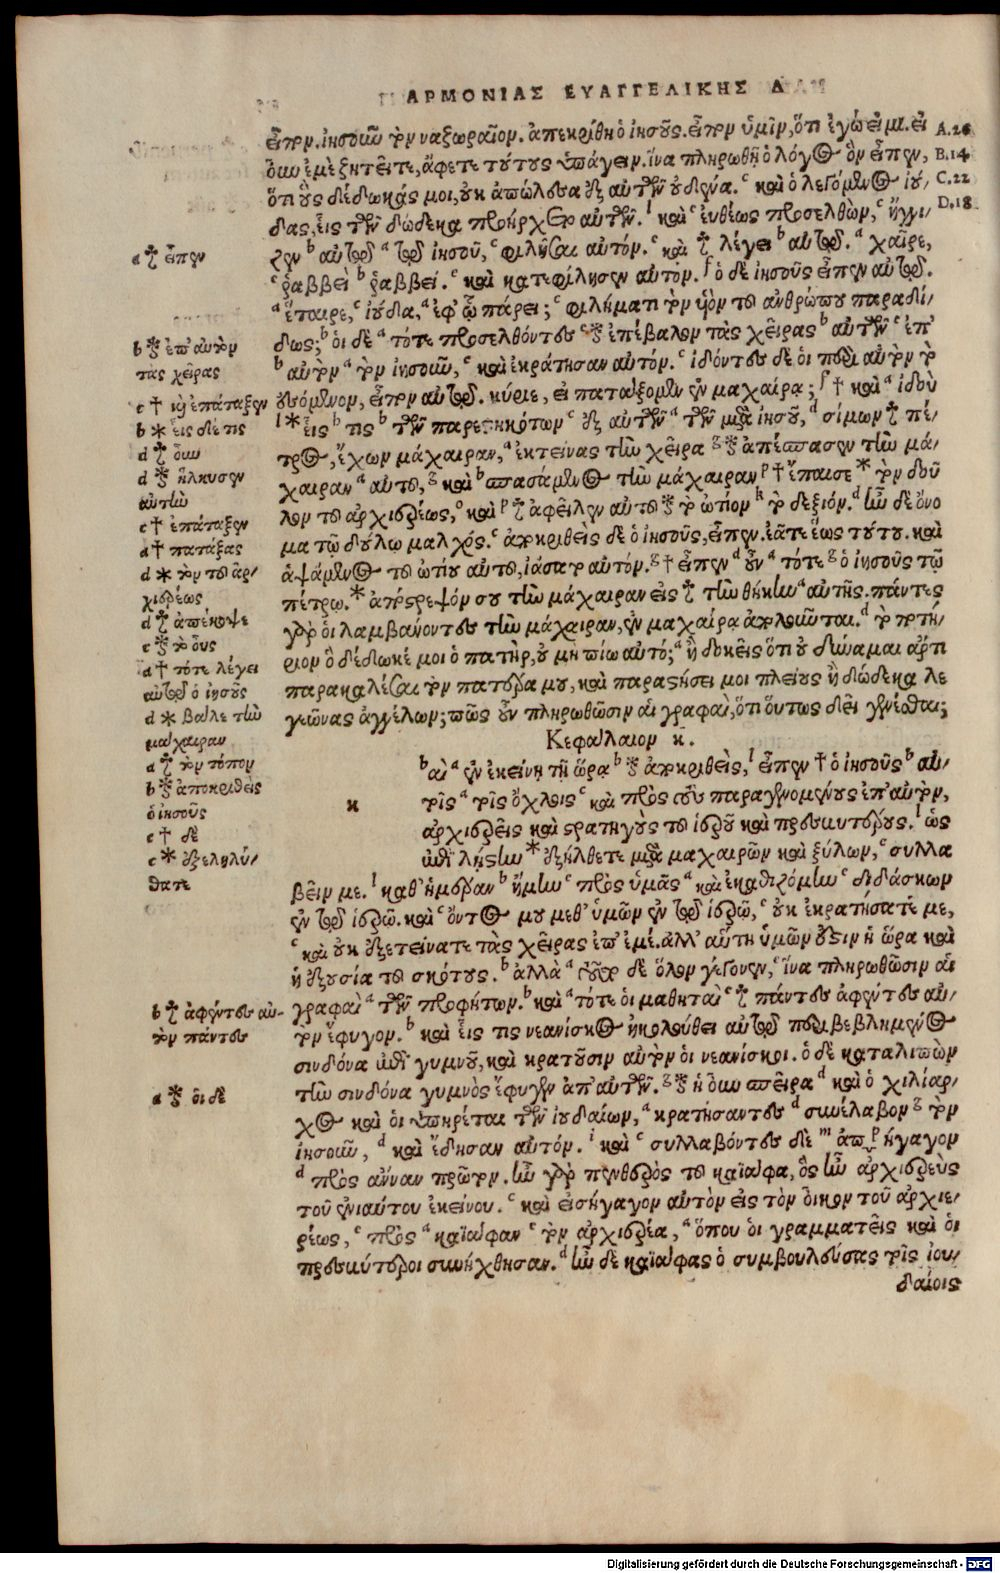 ΑΡΜΟΝΙΑΣ ΕΥΑΓΓΕΛΙΚΗΣ Δ
εἶπον. ἰησοῦν τὸν ναζωραῖον. ἀπεκρίθη ὁ ἰησοῦς. εἶπον ὑμῖν, ὅτι ἐγώ εἰμι. εἰ
οὖν ἐμὲ ζητεῖτε, ἄφετε τούτους ὑπάγειν. ἵνα πληρωθῇ ὁ λόγος ὃν εἶπεν,
ὅτι οὓς δέδωκάς μοι, οὐκ ἀπώλεσα ἐξ αὐτῶν οὐδένα. c καὶ ὁ λεγόμενος ἰού/
δας, εἷς τῶν δώδεκα προήρχετο αὐτῶν. l καὶ c εὐθέως προσελθὼν, c ἤγγι/
σεν b αὐτῷ a τῷ ἰησοῦ, c φιλῆσαι αὐτόν. c καὶ † λέγει b αὐτῷ. a χαῖρε,
c ῥαββεὶ b ῥαββεί. c καὶ κατεφίλησεν αὐτόν. f ὁ δὲ ἰησοῦς εἶπεν αὐτῷ.
a ἕταιρε, c ἰούδα, a ἐφ' ᾧ πάρει; c φιλήματι τὸν υἱὸν τοῦ ἀνθρώπου παραδί/
δως; b οἱ δὲ a τότε προσελθόντες c * ἐπέβαλον τὰς χεῖρας b αὐτῶν c ἐπ'
b αὐτὸν a τὸν ἰησοῦν, c καὶ ἐκράτησαν αὐτόν. c ἰδόντες δὲ οἱ περὶ αὐτὸν τὸ
ἐσόμενον, εἶπον αὐτῷ. κύριε, εἰ πατάξομεν ἐν μαχαίρᾳ; f † καὶ a ἰδοὺ
l * εἷς b τις b τῶν παρεστηκότων c ἐξ αὐτῶν a τῶν μετὰ ἰησοῦ, d σίμων † πέ/
τρος, ἔχων μάχαιραν, a ἐκτείνας τὴν χεῖρα g * ἀπέσπασεν τὴν μά/
χαιραν a αὐτοῦ, g καὶ b σπασάμενος τὴν μάχαιραν p † ἔπαισε * τὸν δοῦ
λον τοῦ ἀρχιερέως, o καὶ p † ἀφεῖλεν αὐτοῦ * τὸ ὠτίον k τὸ δεξιόν. d ἦν δὲ ὄνο
μα τῷ δούλῳ μαλχός. c ἀποκριθεὶς δὲ ὁ ἰησοῦς, εἶπεν. ἐᾶτε ἕως τούτου. καὶ
ἁψάμενος τοῦ ὠτίου αὐτοῦ, ἰάσατο αὐτόν. g † εἶπεν d οὖν a τότε g ὁ ἰησοῦς τῷ
πέτρῳ. * ἀπόστρεψόν σου τὴν μάχαιραν εἰς † τὴν θήκην a αὐτῆς. πάντες
γὰρ οἱ λαμβανόντες τὴν μάχαιραν, ἐν μαχαίρᾳ ἀπολοῦνται. d τὸ ποτή/
ριον ὃ δέδωκέ μοι ὁ πατὴρ, οὐ μὴ πίω αὐτό; a ἢ δοκεῖς ὅτι οὐ δύναμαι ἄρτι
παρακαλέσαι τὸν πατέρα μου, καὶ παραστήσει μοι πλείους ἢ δώδεκα λε
γεῶνας ἀγγέλων; πῶς οὖν πληρωθῶσιν αἱ γραφαὶ, ὅτι οὕτως δεῖ γενέσθαι;
Κεφάλαιον κ.
b καὶ a ἐν ἐκείνῃ τῇ ὥρᾳ b * ἀποκριθεὶς, l εἶπεν † ὁ ἰησοῦς b αὐ/
κ
τοῖς a τοῖς ὄχλοις c καὶ πρὸς τοὺς παραγενομένους ἐπ' αὐτὸν,
ἀρχιερεῖς καὶ στρατηγοὺς τοῦ ἱεροῦ καὶ πρεσβυτέρους. l ὡς
ἐπὶ λῃστὴν * ἐξήλθετε μετὰ μαχαιρῶν καὶ ξύλων, c συλλα
βεῖν με. l καθ' ἡμέραν b ἤμην c πρὸς ὑμᾶς a καὶ ἐκαθεζόμην c διδάσκων
ἐν τῷ ἱερῷ. καὶ c ὄντος μου μεθ' ὑμῶν ἐν τῷ ἱερῷ, c οὐκ ἐκρατήσατέ με,
c καὶ οὐκ ἐξετείνατε τὰς χεῖρας ἐπ' ἐμέ. ἀλλ' αὕτη ὑμῶν ἐστιν ἡ ὥρα καὶ
ἡ ἐξουσία τοῦ σκότους. b ἀλλὰ a τοῦτο δὲ ὅλον γέγονεν, c ἵνα πληρωθῶσιν αἱ
γραφαὶ a τῶν προφήτων. b καὶ a τότε οἱ μαθηταὶ c † πάντες ἀφέντες αὐ/
τὸν ἔφυγον. b καὶ εἷς τις νεανίσκος ἠκολούθει αὐτῷ περιβεβλημένος
σινδόνα ἐπὶ γυμνοῦ, καὶ κρατοῦσιν αὐτὸν οἱ νεανίσκοι. ὁ δὲ καταλιπὼν
τὴν σινδόνα γυμνὸς ἔφυγεν ἀπ' αὐτῶν. g * ἡ οὖν σπεῖρα d καὶ ὁ χιλίαρ/
χος καὶ οἱ ὑπηρέται τῶν ἰουδαίων, a κρατήσαντες d συνέλαβον g τὸν
ἰησοῦν, d καὶ ἔδησαν αὐτόν. i καὶ c συλλαβόντες δὲ m ἀπ p ήγαγον
d πρὸς ἄνναν πρῶτον. ἦν γὰρ πενθερὸς τοῦ καϊάφα, ὃς ἦν ἀρχιερεὺς
τοῦ ἐνιαύτου ἐκείνου. c καὶ εἰσήγαγον αὐτὸν εἰς τὸν οἶκον τοῦ ἀρχιε/
ρέως, c πρὸς a καϊάφαν c τὸν ἀρχιερέα, a ὅπου οἱ γραμματεῖς καὶ οἱ
πρεσβύτεροι συνήχθησαν. d ἦν δὲ καϊάφας ὁ συμβουλεύσας τοῖς ἰου/
δαίοις
A.26
B.14
C.22
D.18
a † εἶπεν
b * ἐπ' αὐτὸν
τὰς χεῖρας
c † καὶ ἐπάταξεν
b * εἷς δέ τις
d † οὖν
d * εἵλκυσεν
αὐτὴν
c † ἐπάταξεν
a † πατάξας
d * τὸν τοῦ ἀρ/
χιερέως
d † ἀπέκοψε
c * τὸ οὖς
a † τότε λέγει
αὐτῷ ὁ ἰησοῦς
d * βάλε τὴν
μάχαιραν
a † τὸν τόπον
b * ἀποκριθεὶς
ὁ ἰησοῦς
c † δὲ
c * ἐξεληλύ/
θατε
b † ἀφέντες αὐ-
τὸν πάντες
a * οἱ δὲ
Digitalisierung gefördert durch die Deutsche Forschungsgemeinschaft - DFG